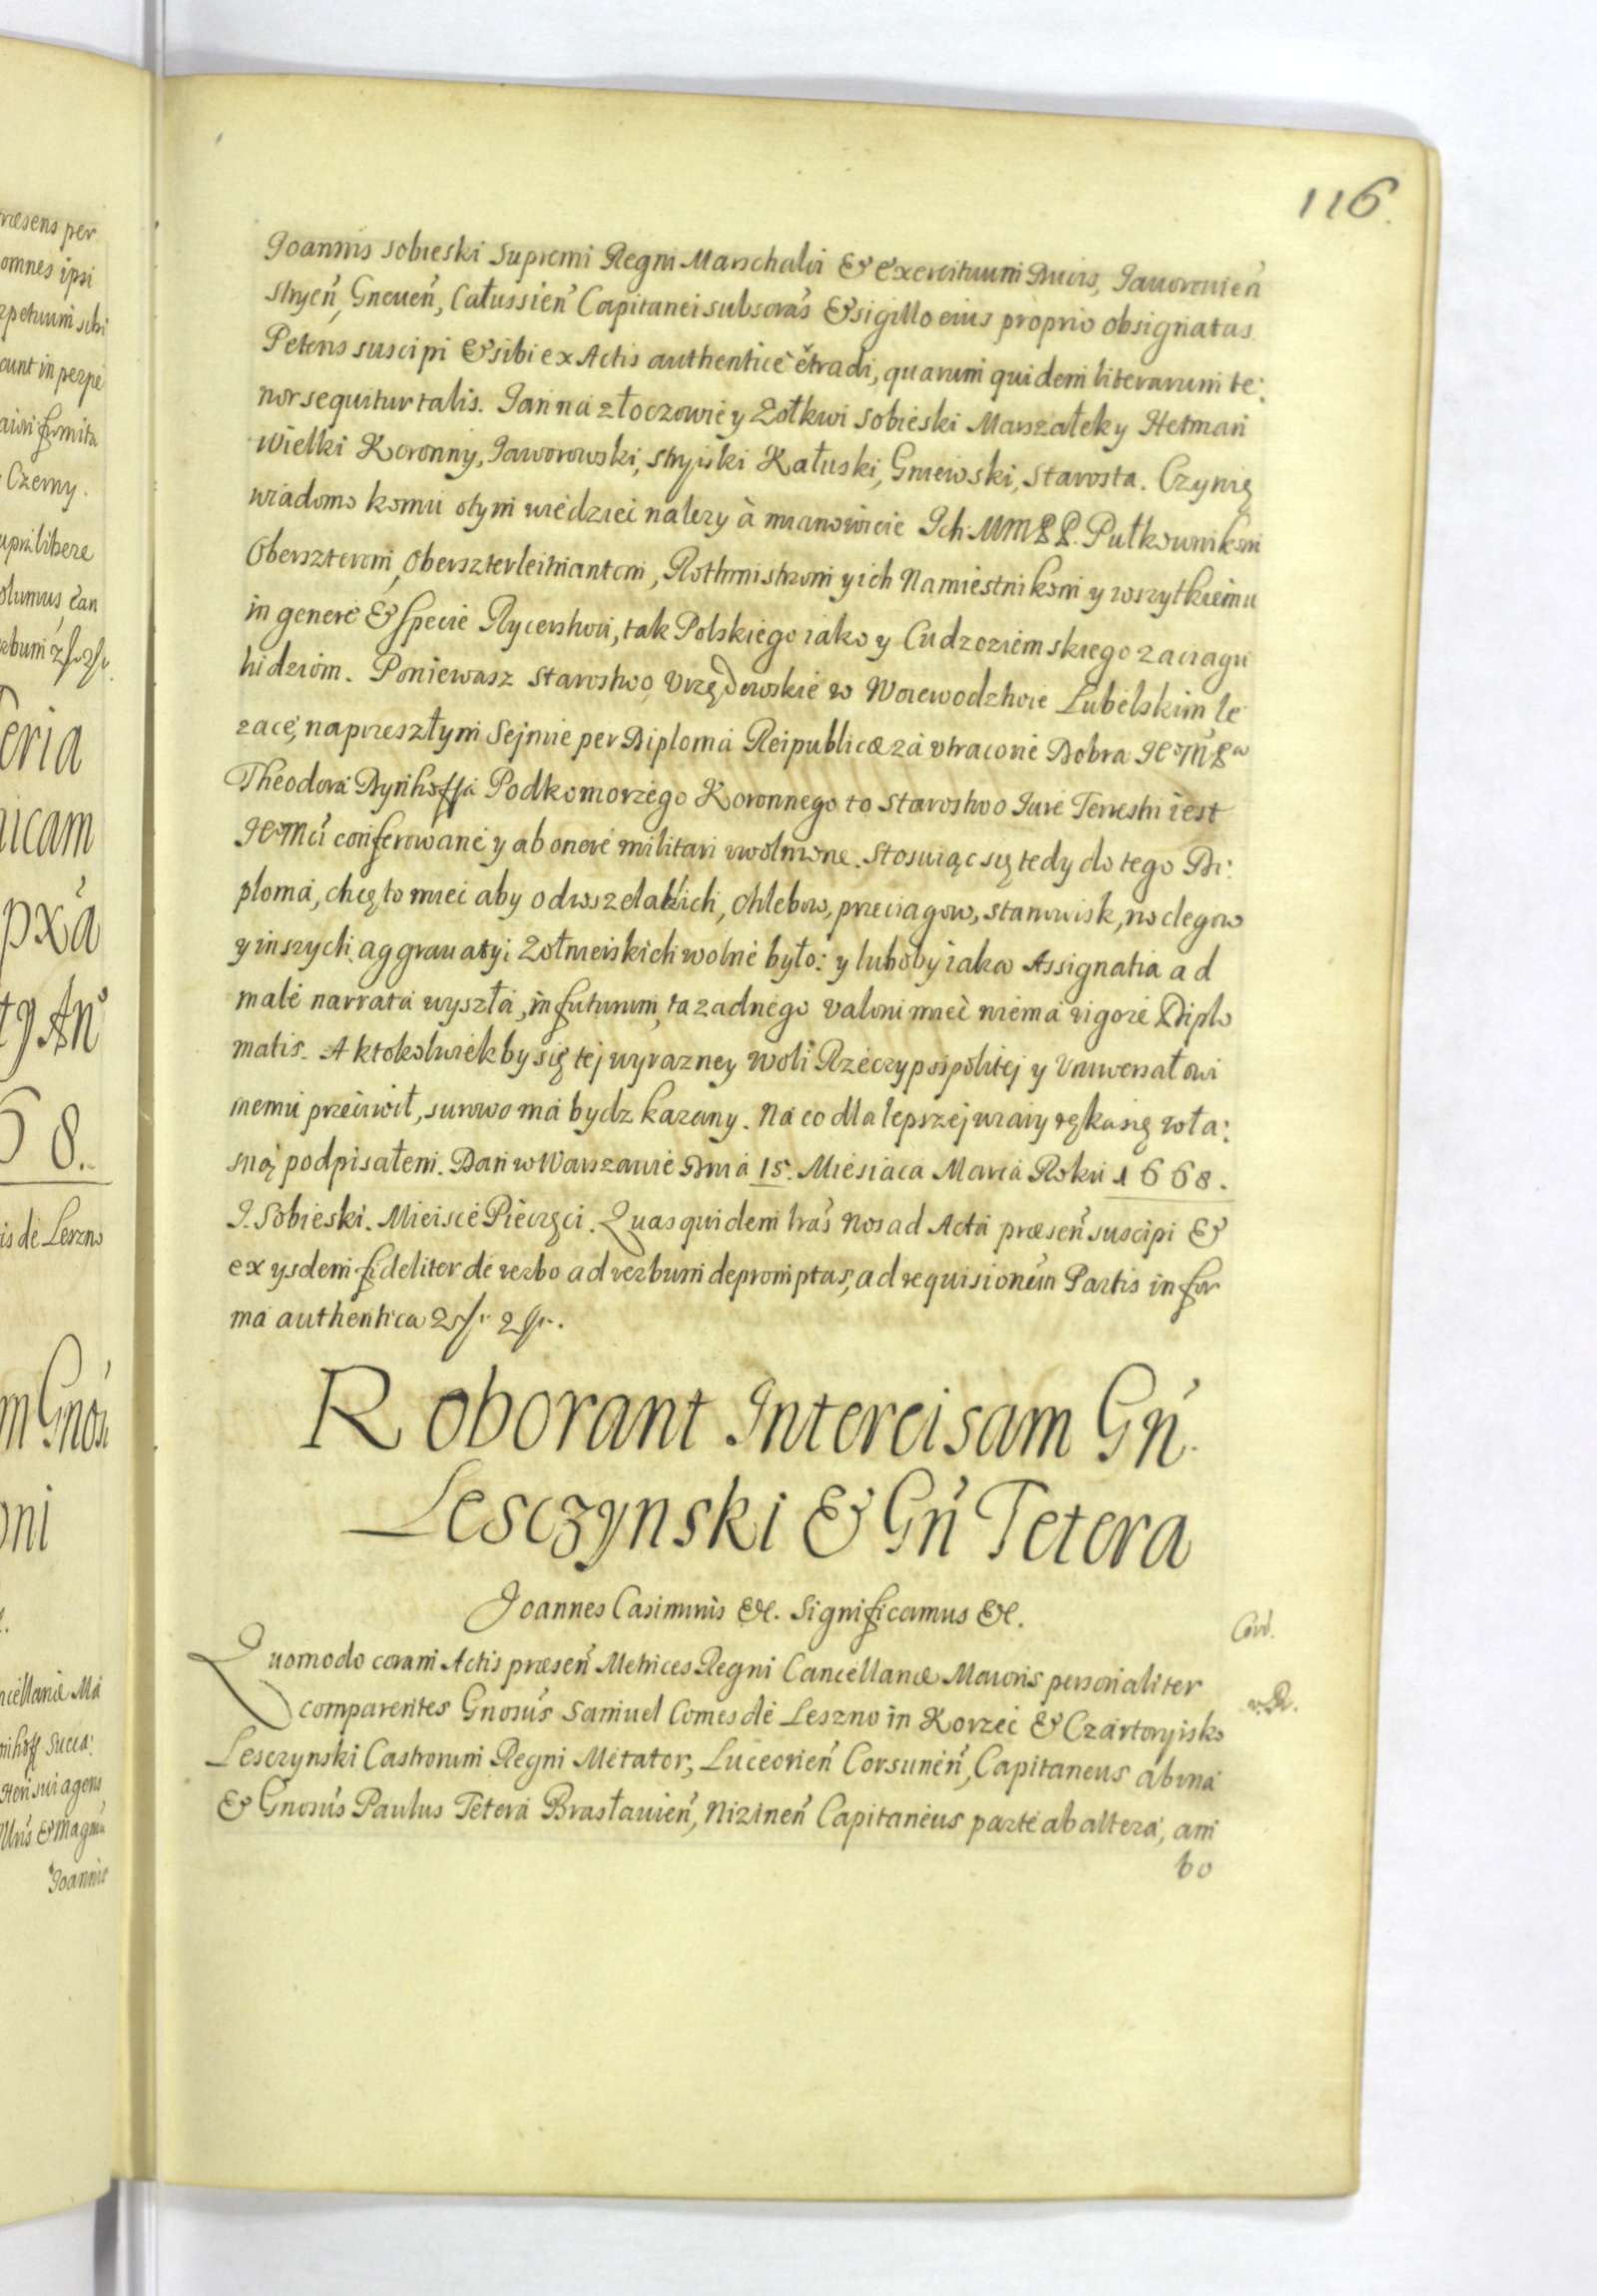 116.
Joannis Sobieski Supremi Regni Marschalci & exercituum Ducis, Jauoronień
Stryeń, Gneueń, Całussień Capitanei subscrās & sigillo eius proprio obsignatas
Petens suscipi & sibi ex Actis authenticè extradi, quarum quidem literarum te:
nor sequitur talis. Jan na złoczowie y Zołkwi Sobieski Marszałek y Hetman
Wielki Koronny, Jaworowski, Stryiski Kałuski, Gniewski, Starosta. Czynię
wiadomo komu otym wiedziec nalezy à mianowicie Ich MMPP. Pułkownikom
Oberszterom, Oberszterleitnantom, Rothmistrzom y ich Namiestnikom y wszytkiemu
in genere & specie Rycerstwu, tak Polskiego iako y Cudzoziemskiego zaciagu
hudziom. Poniewasz Starostwo Vrzędowskie w Woiewodztwie Lubelskim le
zace, na przeszłym Sejmie per Diploma Reipublicæ zá vtracone Dobra
Theodora Dynhoffa Podkomorzego Koronnego to Starostwo Jure Terrestri iest
Jemci conferowane y ab onere militari vwolnione. Stosuiąc się tedy do tego Di:
ploma, chcę to miec aby od wszelakich, chlebow, przeciagow, stanowisk, noclegow
y inszych aggrauatyi Zołnierskich wolne było: y luboby iaka Assignatia ad
male narrata wyszła, in futurum, ta zadnego valoru miec niema vigore Diplo
matis. A ktokolwiekby się tej wyrazney woli Rzeczyposipolitej y Vniwersałowi
memu przeciwił, surowo ma bydz karany. Na co dla lepszej wiary ręką się wła:
sną podpisałem. Dan w Warszawie Dnia 15. Miesiaca Marca Roku 1668.
J. Sobieski. Mieisce Pieczęci. Quas quidem lrās Nos ad Acta præseń suscipi &
ex ysdem fideliter de verbo ad verbum depromptas, ad requisionem Partis in for
ma authentica
Roborant Intercisam Gń
Lesczynski & Gń Tetera
Joannes Casimirus &c. Significamus &c.
Quomodo coram Actis præseń Metrices Regni Cancellariæ Maioris personaliter
comparentes Gnosūs Samuel Comes de Leszno in Korzec & Czartoryisko
Lesczynski Castrorum Regni Metator, Luceorień Corsuneń, Capitaneus ab vna
& Gnosūs Paulus Tetera Brasłauień, Nizineń Capitaneus parte ab altera, am
bo